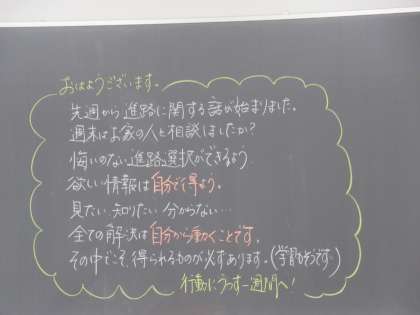 おはようございます。
先週から進路に関する話が始まりました。
週末はお家の人と相談しましたか?
悔いのない進路選択ができるよう
欲しい情報は自分で得よう。
見たい、知りたい、分からない…
全ての解決は自分から動くことです。
その中でこそ、得られるものが必ずあります。(学習もそうです)
行動にうつす一週間へ!